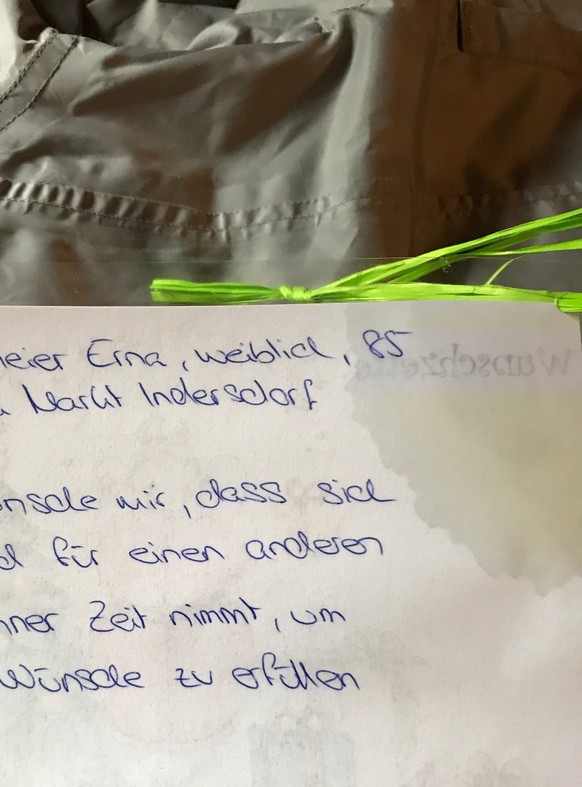 meier Erna, weiblich, 85
Markt Indersdorf
nsche mir, dass sich
d für einen anderen
nner Zeit nimmt, um
Wünsche zu erfüllen
Wunschzette